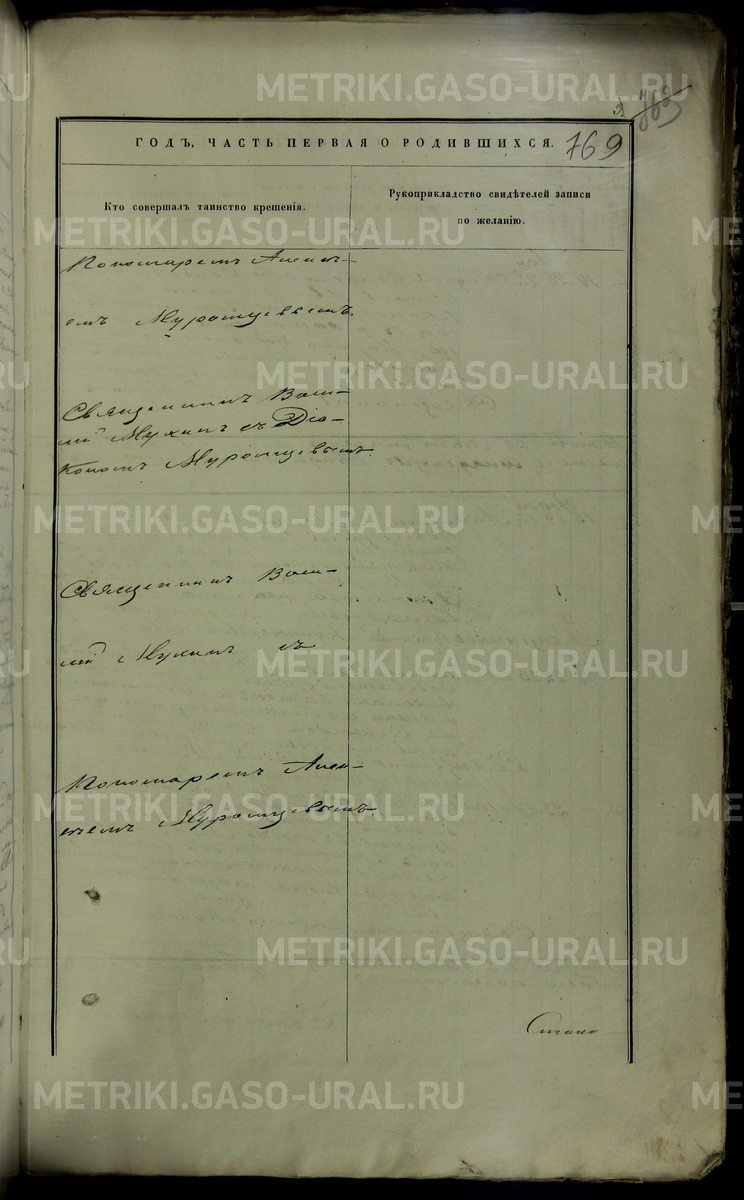 METRIKI.GASO-URAL.RU
769
ГОДЪ, ЧАСТЬ ПЕРВАЯ О РОДИВШИХСЯ.
Кто совершалъ таинство крещенія.
Рукоприкладство свидѣтелей записи
по желанію.
Пономаремъ Алексѣ-
емъ Муромцевымъ.
Священникъ Васи-
лій Мухинъ съ Діа-
кономъ Муромцевымъ.
Священникъ Васи-
лій Мухинъ съ
Пономаремъ Алек-
сѣемъ Муромцевымъ.